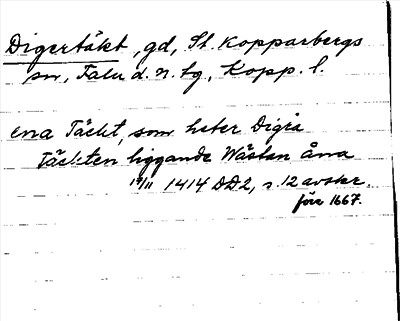 Digertäkt, gd, St. Kopparbergs
sn, Falu d. n. tg, Kopp. l.
ena Täckt, som heter Digra
Täckten liggande Wästan åma
17/11 1414 DD2, s. 12 avskr.
före 1667.